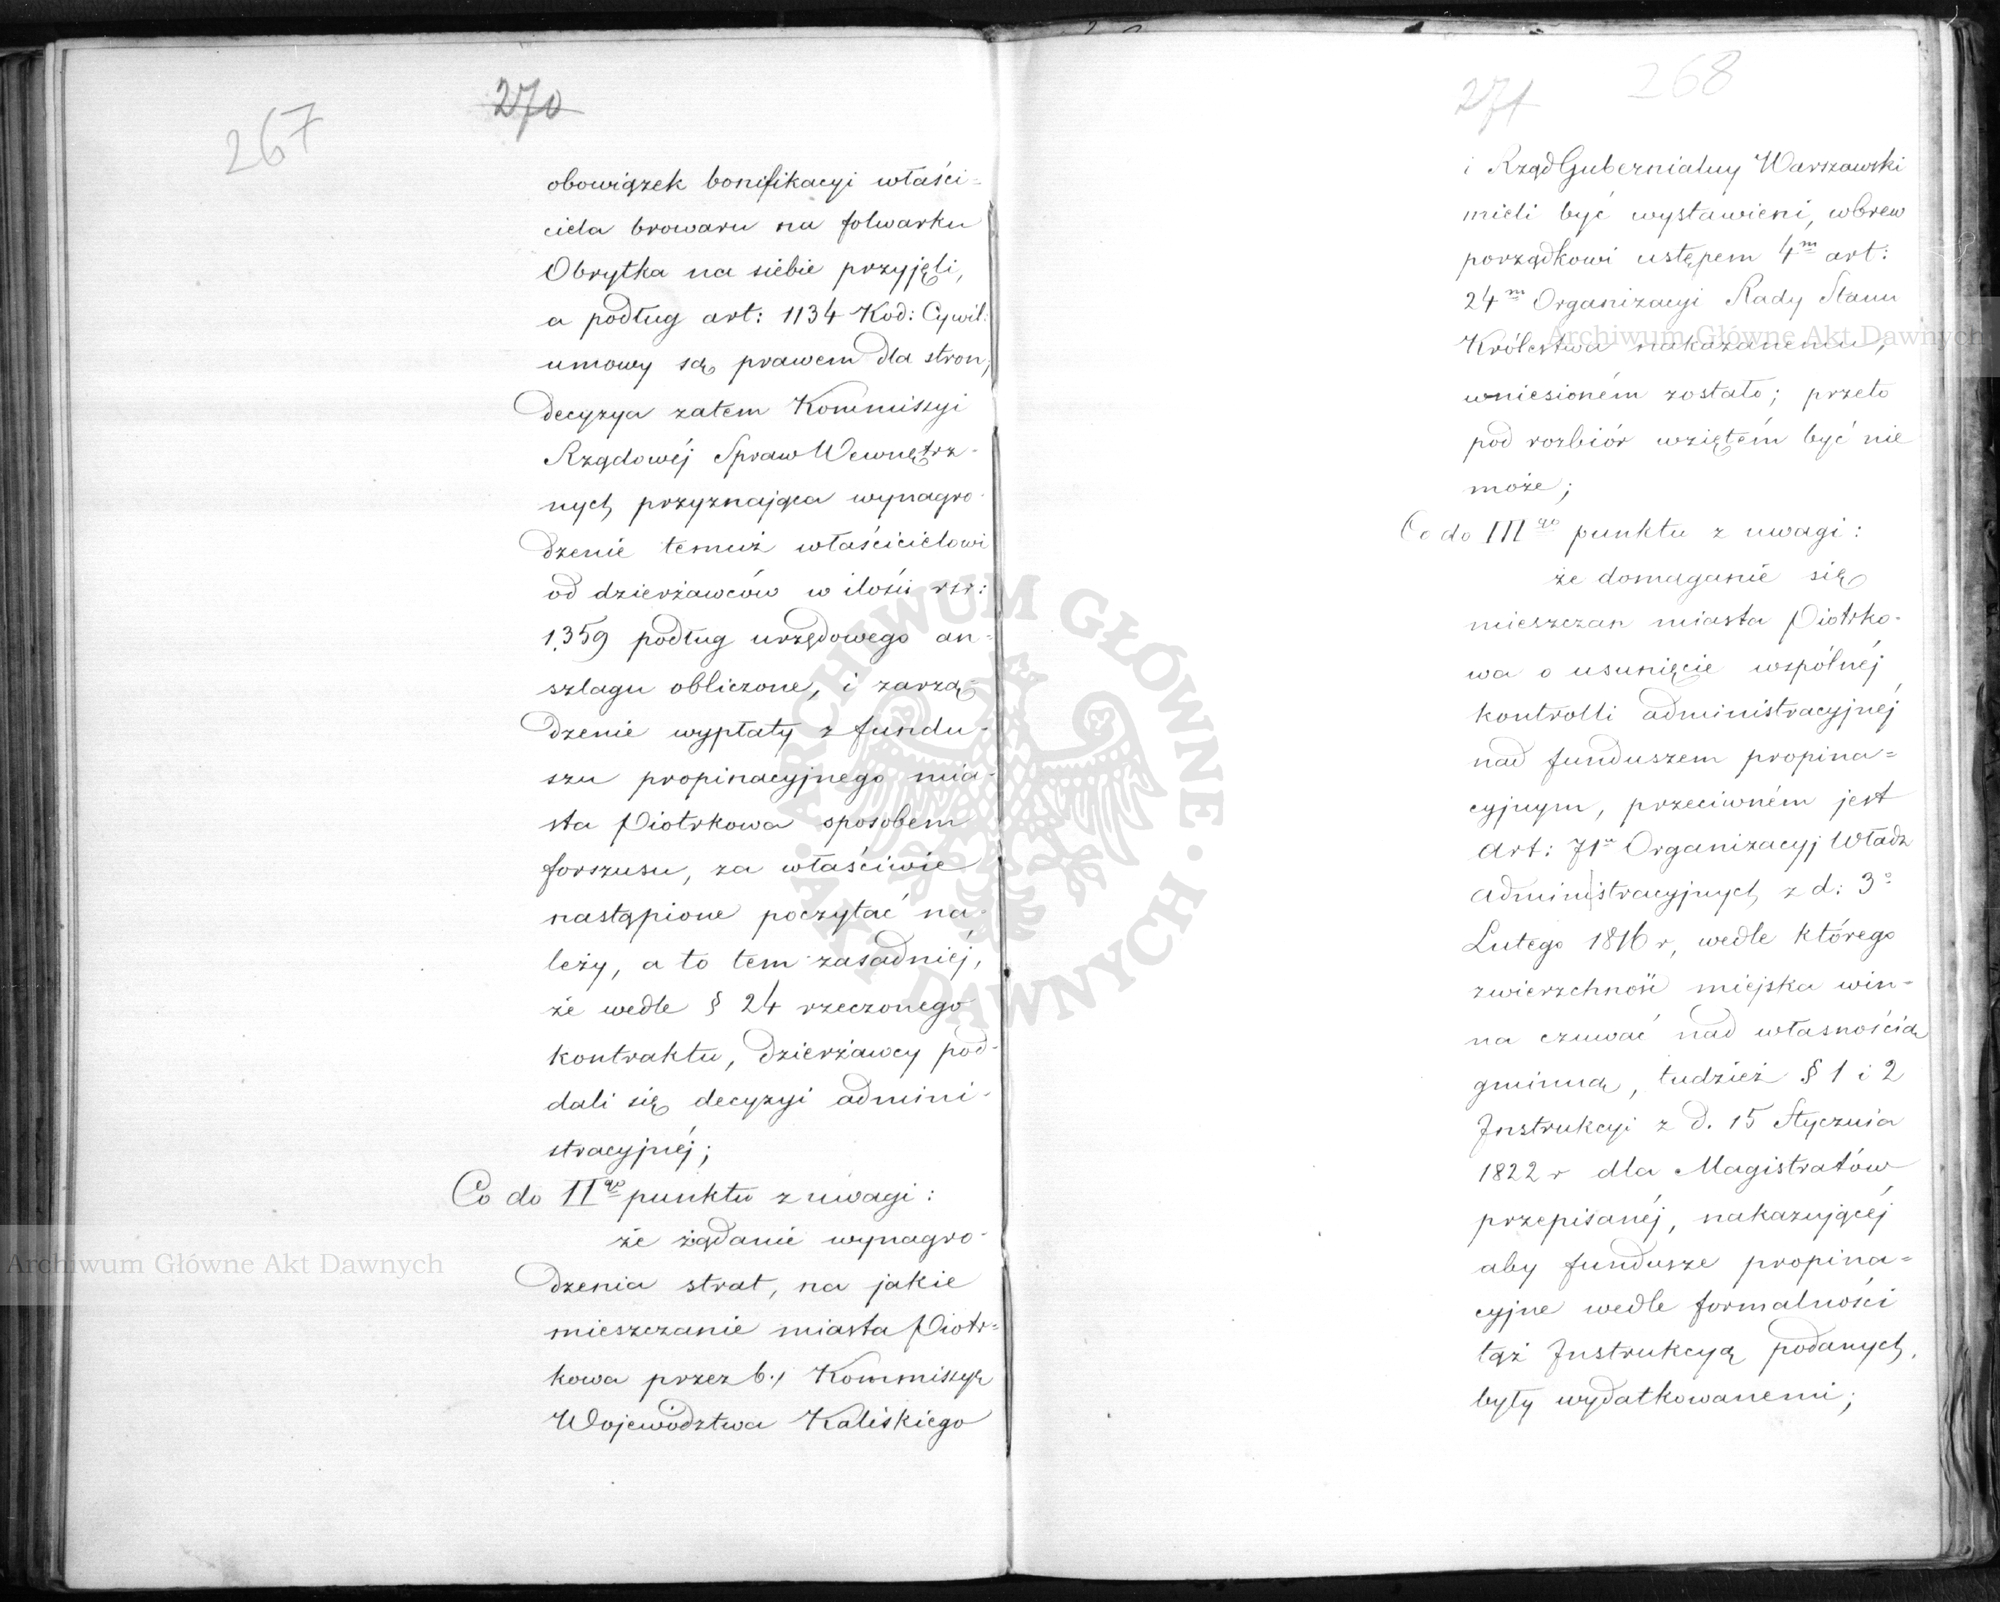 267
270
obowiązek bonifikacyi właści=
ciela browaru na folwarku
Obrytka na siebie przyjęli,
a podług art: 1134 Kod: Cywil:
umowy są prawem dla stron,
decyzya zatem Kommissyi
Rządowéj Spraw Wewnętrz-
nych przyznająca wynagro-
dzenie temuż właścicielowi
od dzierżawców w ilości rsr:
1,359 podług urzędowego an-
szlagu obliczone, i zarzą-
dzenie wypłaty z fundu-
szu propinacyjnego mia-
sta Piotrkowa sposobem
forszusu, za właściwie
nastąpione poczytać na-
leży, a to tem zasadniéj,
że wedle § 24 rzeczonego
kontraktu, dzierżawcy pod-
dali się decyzyi admini-
stracyjnéj;
Co do II go punktu z uwagi:
że żądanie wynagro-
dzenia strat, na jakie
mieszczanie miasta Piotr=
kowa przez b.) Kommissyą
Województwa Kaliskiego
271
268
i Rząd Gubernialny Warszawski
mieli być wystawieni, wbrew
porządkowi ustępem 4m art:
24m Organizacyi Rady Stanu
Królestwa nakazanemu,
wniesioném zostało; przeto
pod rozbiór wziętém być nie
może;
Co do III go punktu z uwagi:
że domaganie się
mieszczan miasta Piotrko-
wa o usunięcie wspólnéj
kontrolli administracyjnéj
nad funduszem propina=
cyjnym, przeciwném jest
Art: 71u Organizacyj Władz
Administracyjnych z d: 3o
Lutego 1816 r, wedle którego
zwierzchność miejska win-
na czuwać nad własnością
gminną, tudzież § 1 i 2
Instrukcyi z d. 15 Stycznia
1822 r dla Magistratów
przepisanéj, nakazującéj
aby fundusze propina=
cyjne wedle formalności
tąż Instrukcyą podanych,
były wydatkowanemi;
Archiwum Główne Akt Dawnych
Archiwum Główne Akt Dawnych
ARCHIWUM GŁÓWNE
AKT DAWNYCH